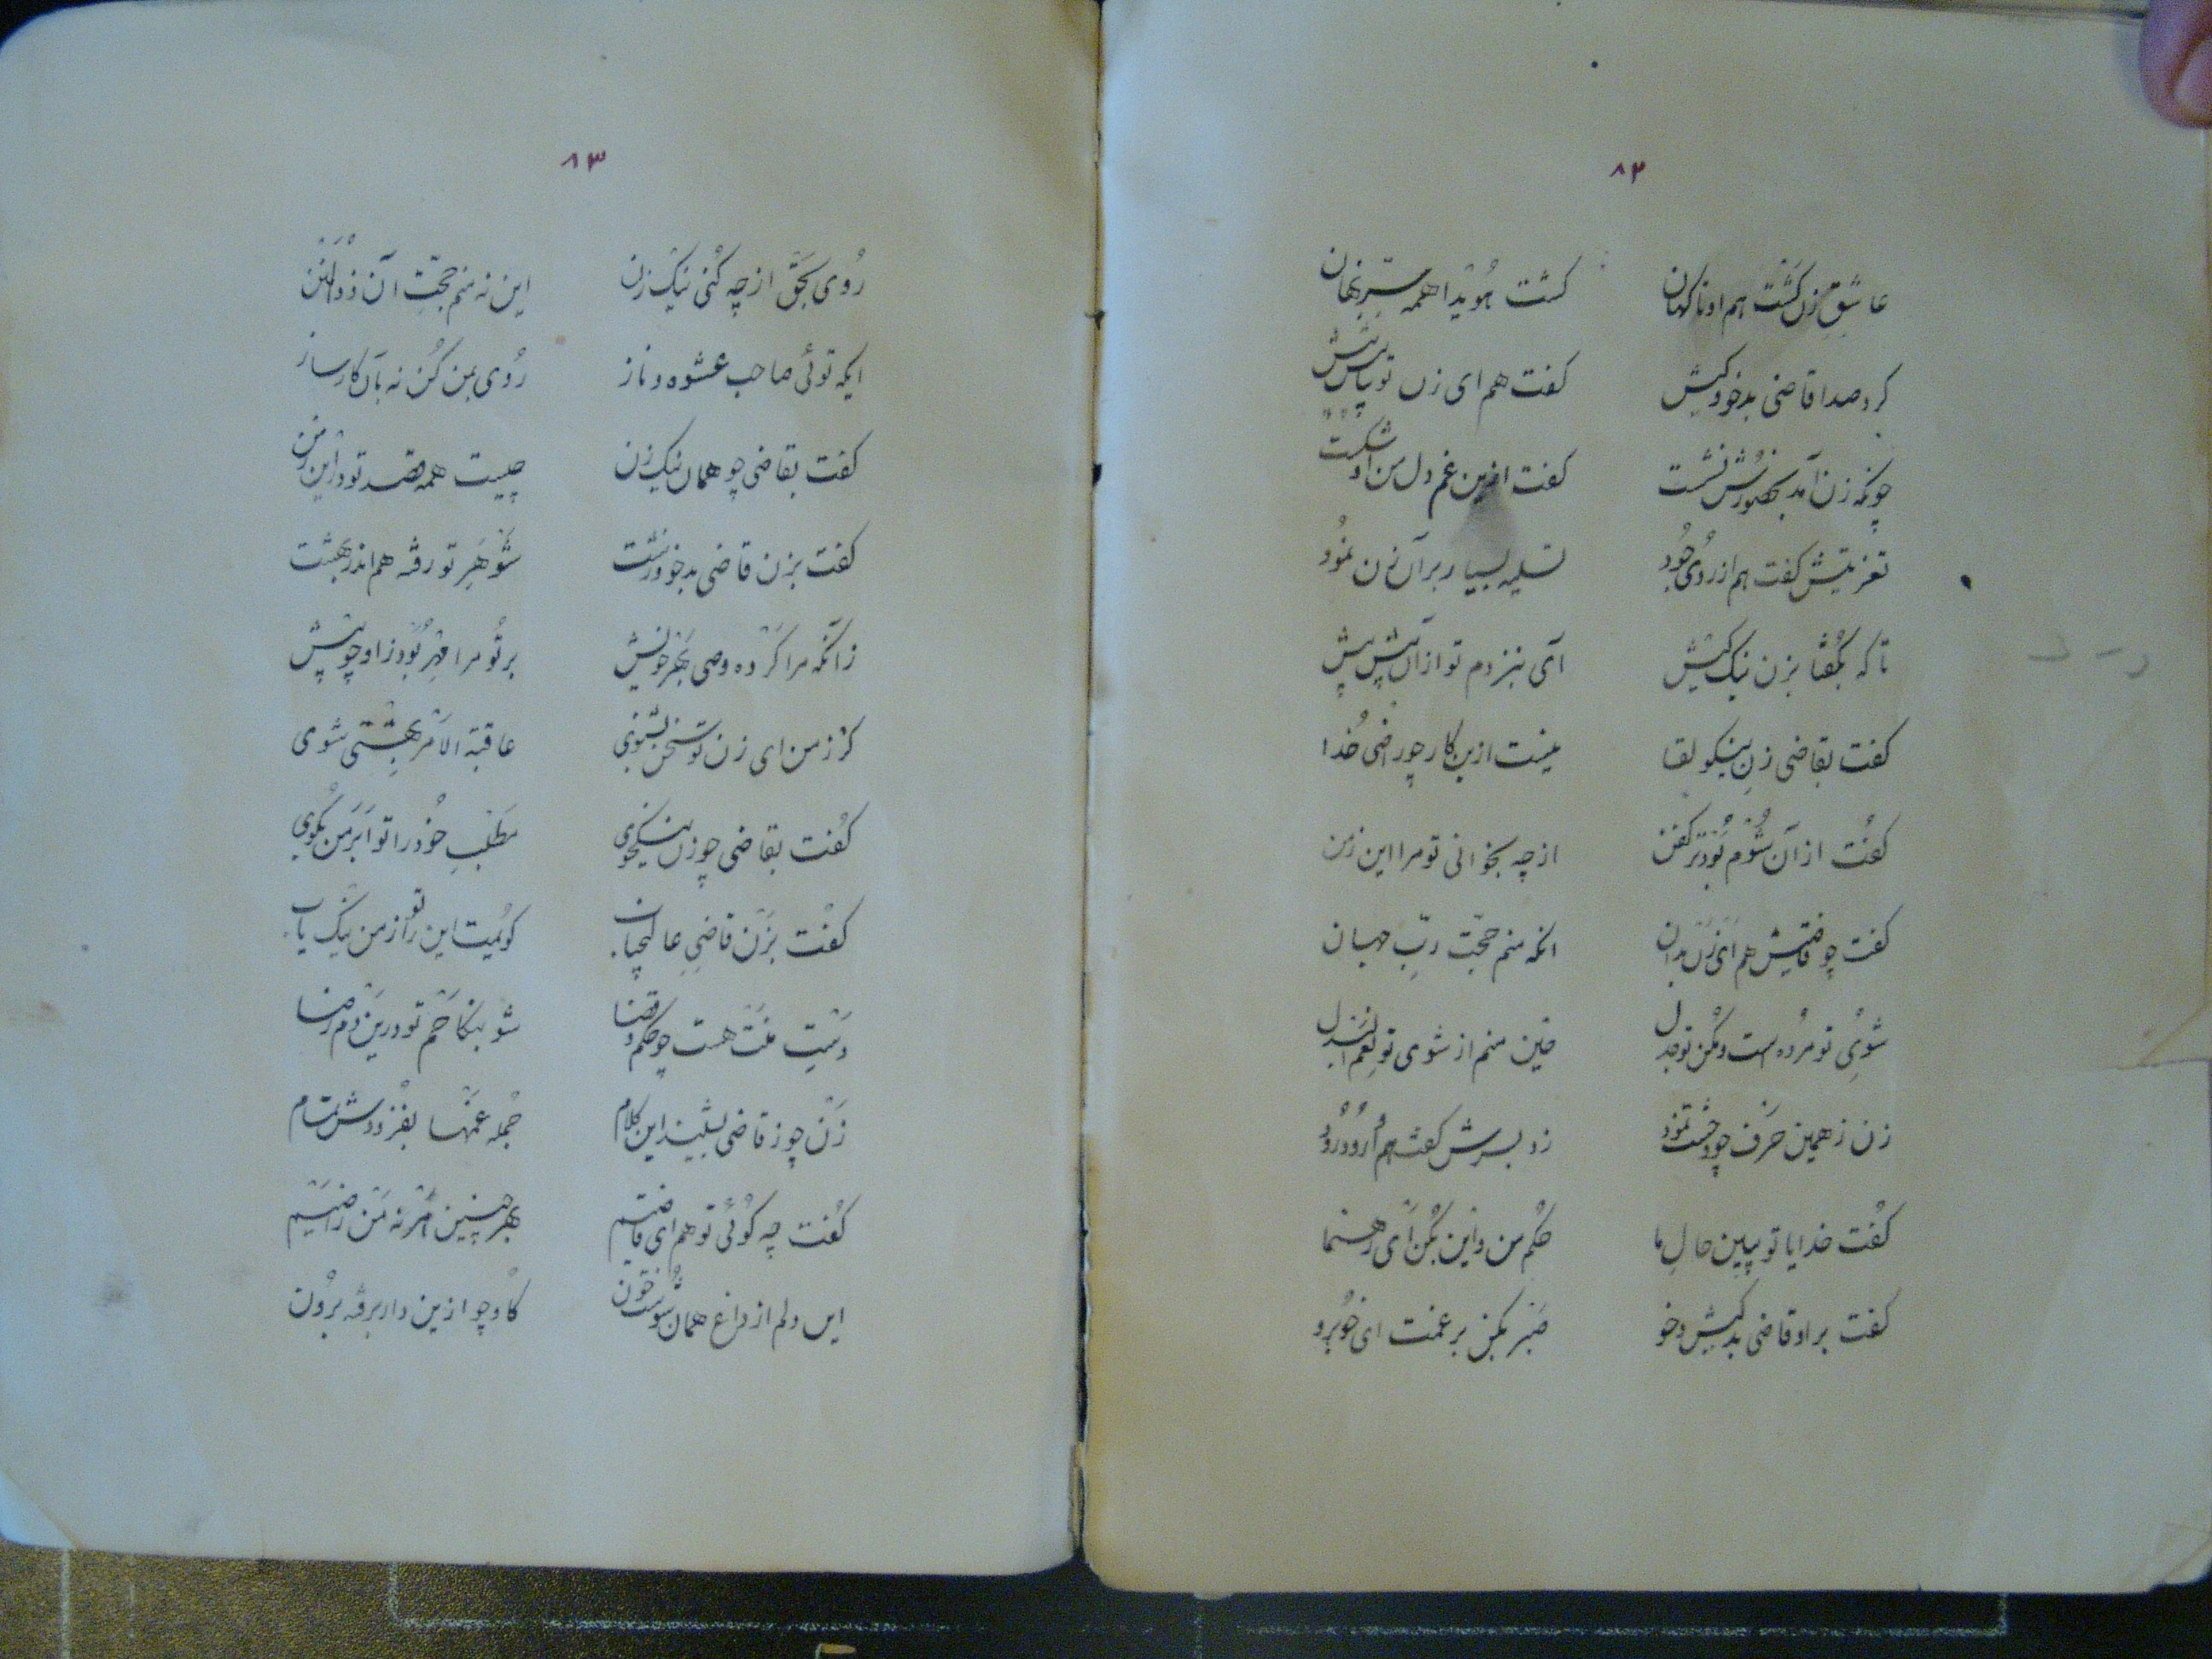 ۸۲
عاشق زن گشت هم او ناگهان گشت هُویدا همه سرّ نهان
کرد صدا قاضی بدخو و کیش گفت هم ای زن تو بیا پیش پیش
چونکه زن آمد بحضورش نشست گفت ازین غم دل من او شکست
تعزیتش گفت هم از روی جُود تسلیه بسیار بر آن زن نمُود
تا که بگفتا بزن نیک کیش آی بنزدم تو از آن پیش پیش
گفت بقاضی زنِ نیکو لقا نیست ازین کار چو راضی خُدا
گفت از آن شُوم بُوَد تر کفن از چه بخوانی تو مرا این زمن
گفت چو قاضیش هم ای زن بدان آنکه منم حجّت ربّ جهان
شویِ تو مُرده است و مکُن تو جدل حین منم از شوی تو نِعم البدل
زن ز همین حَرف چو وحشت نمُود زد بسرش گفت هم
گفت خدایا تو ببین حالِ ما حکم من و این بکُن ای رهنما
گفت بر او قاضی بدکیش و خو صَبر بکن بر غمت ای خُوبرو
۸۳
رُوی بحَقّ از چه کُنی نیک زن این نه منم حجّتِ آن ذوالمنن
ایکه توئی صاحب عشوه و ناز رُوی بمن کُن نه بآن کارساز
گفت بقاضی چو همان نیک زن چیست همه قصد تو در این زمن
گفت بزن قاضی بدخو و زشت شَوهَرِ تو رفته هم اندر بهشت
زآنکه مرا کرده وصی بَهرِ خویش بر تُو مرا مِهر بُوَد زاو چو پیش
گر ز من ای زن تو سخن بشنوی عاقبة الاَمر بهِشتی شوی
گفت بقاضی چو زن نیکخوی مَطلَبِ خُود را تو اَبَر من بگوی
گفت بزَن قاضیِ عالیجناب گویمت این را تو ز من نیک یاب
دَستِ مَنَت هست چو حکم و قضا شو بنکاحَم تو درین دَم رضا
زَن چو ز قاضی بشنید این کلام جُمله غمها بفزودش تمام
گفت چه گوئی تو هم ای قاضیَم بهر چنین اَمر نه مَن راضیَم
این دلم از داغ همان شُوست خون گاو چو ازین دار برفته برُون